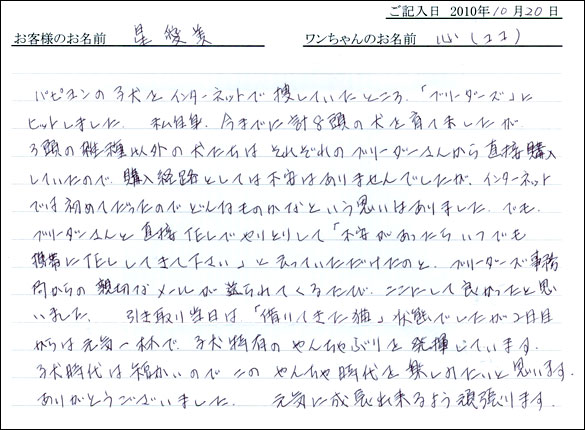 ご記入日 2010年10月20日
お客様のお名前 星 綾美 ワンちゃんのお名前 心(ココ)
パピヨンの子犬をインターネットで捜していたところ、「ブリーダーズ」に
ヒットしました。 私自身、今までに計8頭の犬を育てましたが
3頭の雑種以外の犬たちは それぞれのブリーダーさんから直接購入
していたので、購入経路としては不安はありませんでしたが、インターネット
では初めてだったので どんなものかなという思いはありました。でも、
ブリーダーさんと直接TELでやりとりして「不安があったらいつでも
携帯にTELしてきて下さい」と云っていただけたのと、ブリーダーズ事務
局からの親切なメールが送られてくるたび、ここにして良かったと思
いました。 引き取り当日は、「借りてきた猫」状態でしたが2日目
からは元気一杯で、子犬特有のやんちゃぶりを発揮しています。
子犬時代は短かいのでこのやんちゃ時代を楽しみたいと思います。
ありがとうございました。 元気に成長出来るよう頑張ります。